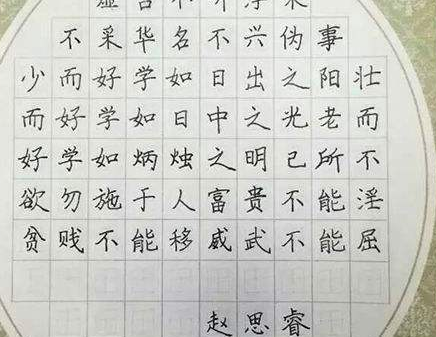 不采华名不兴伪事
少而好学如日出之阳壮
而好学如日中之光老而
好学如炳烛之明己所不
欲勿施于人富贵不能淫
贫贱不能移威武不能屈
赵思睿